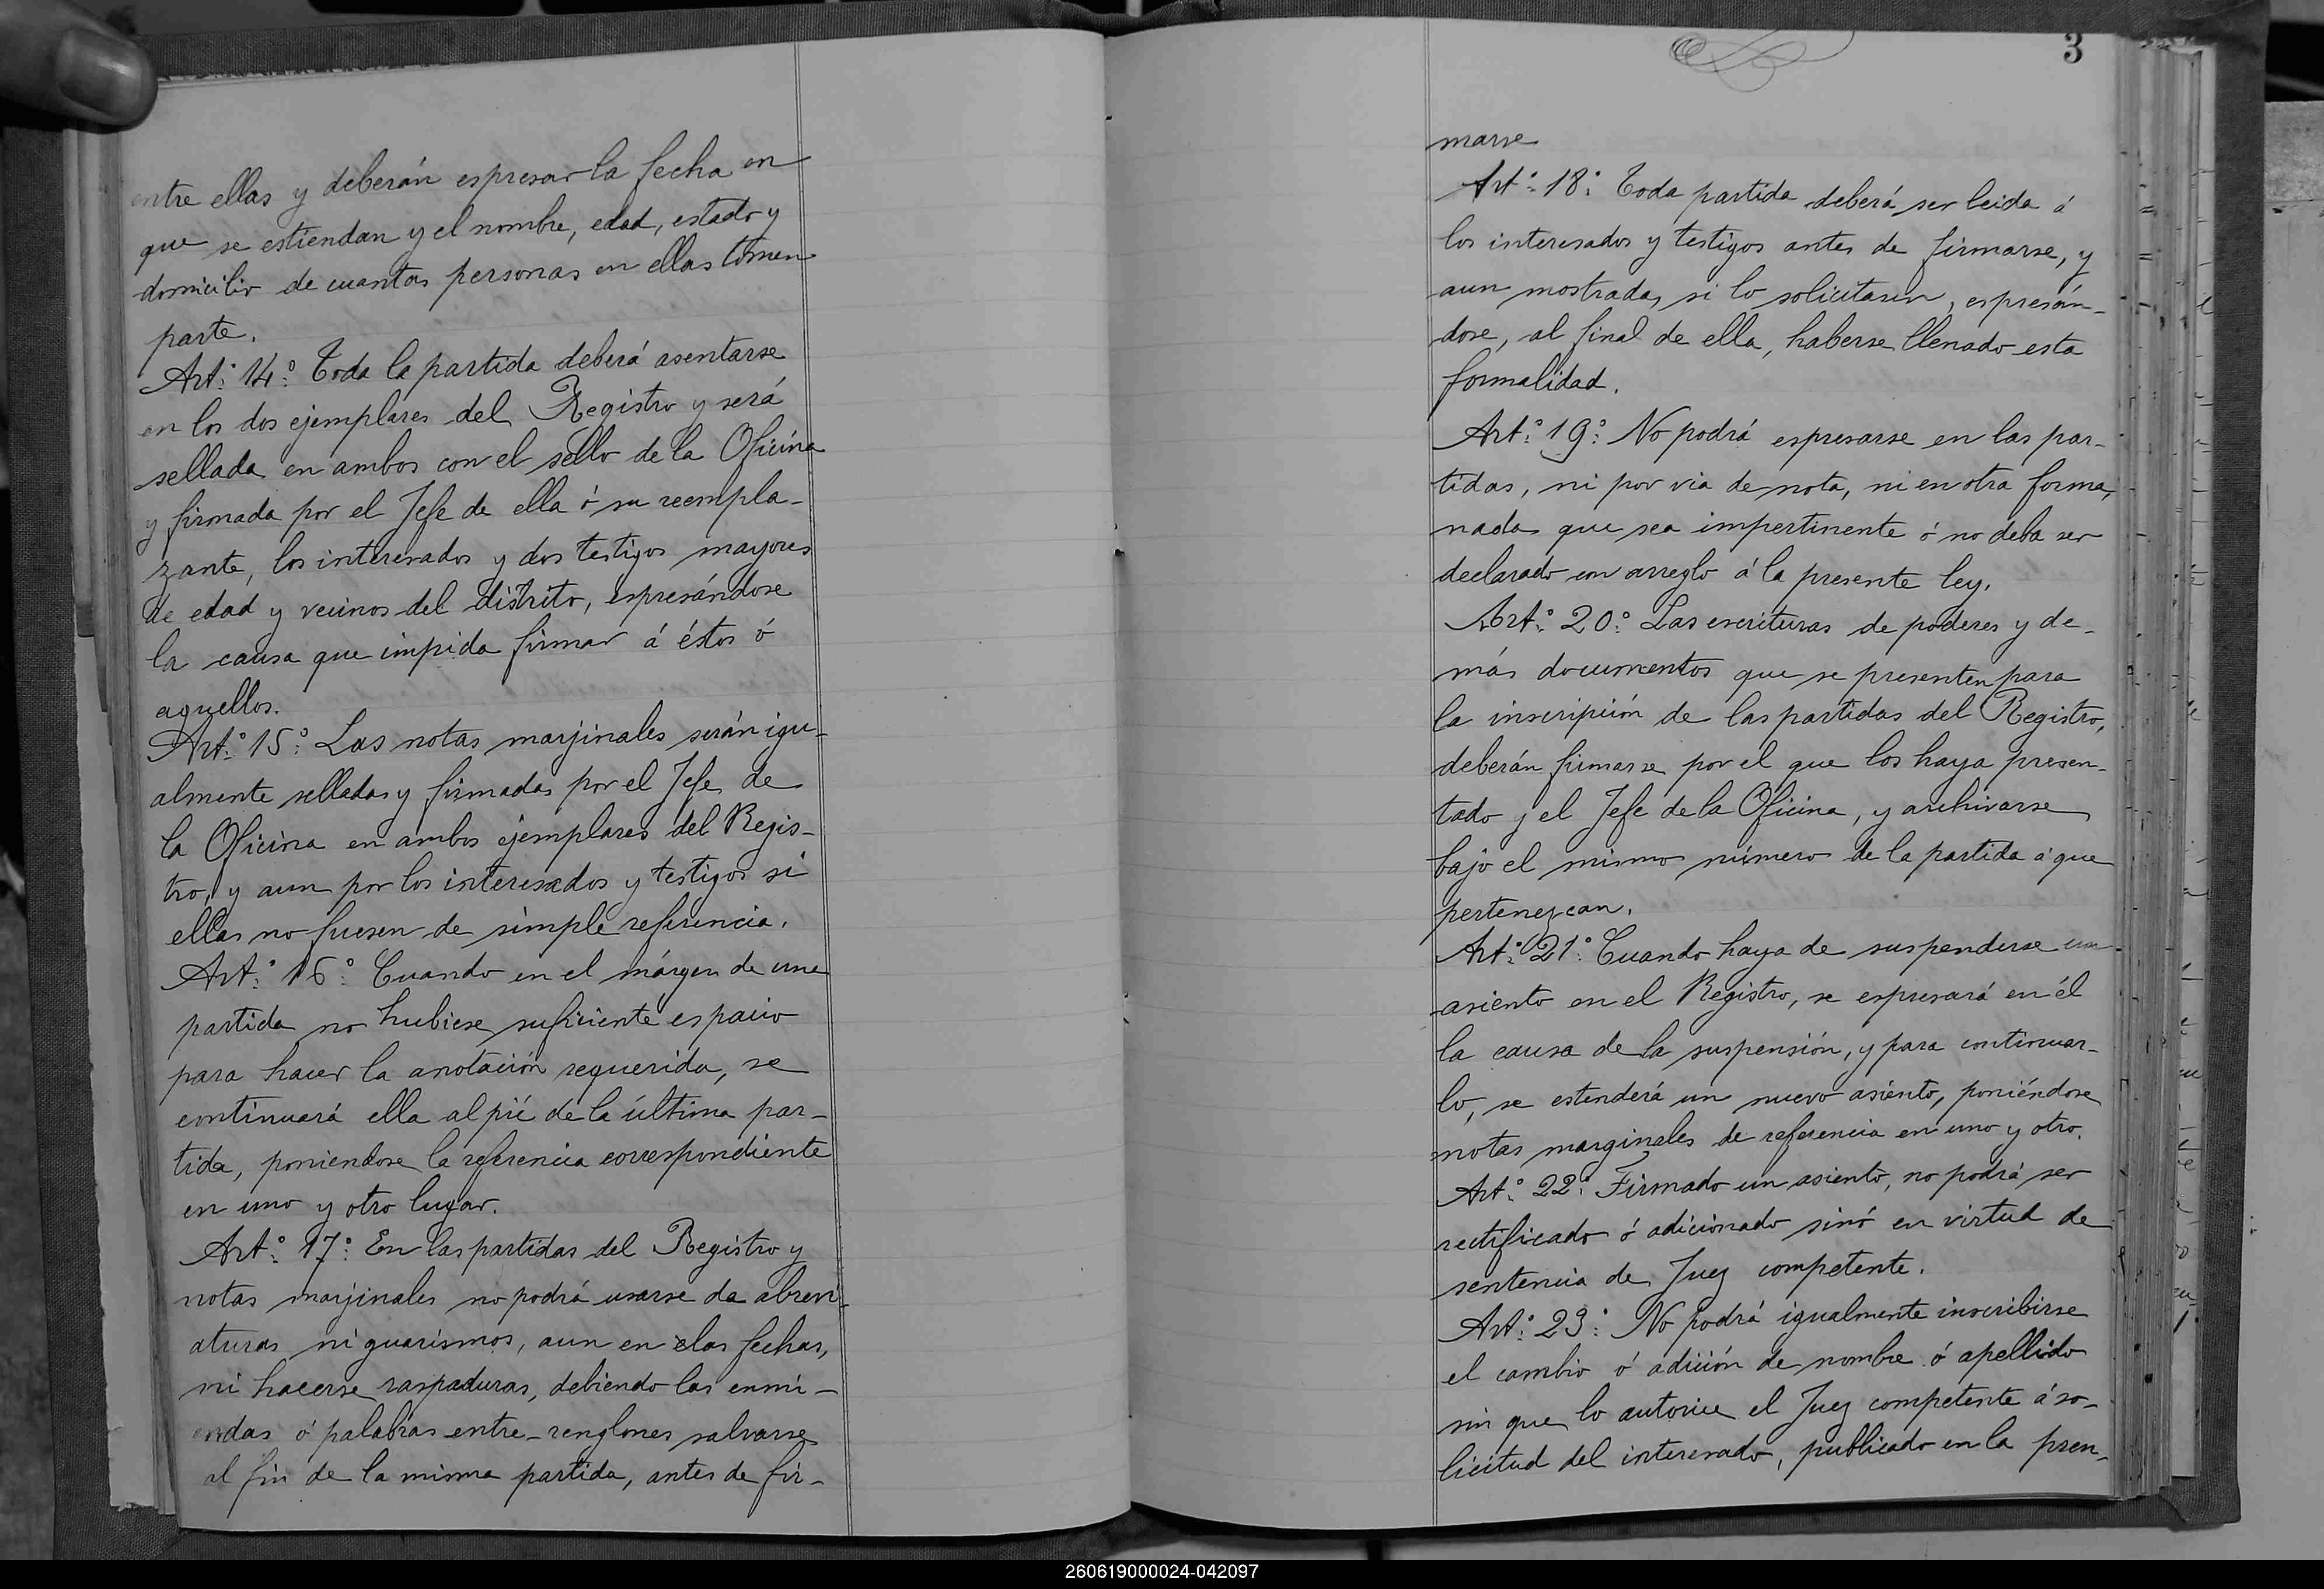 entre ellas y deberán espresar la fecha en
que se estiendan y el nombre, edad, estado y
domicilio de cuantas personas en ellas tomen
parte.
Art.º 14.º Toda la partida deberá asentarse
en los dos ejemplares del Registro y será
sellada en ambos con el sello de la Oficina
y firmada por el Jefe de ella ó su reempla-
zante, los interesados y dos testigos mayores
de edad y vecinos del distrito, espresándose
la causa que impida firmar á éstos ó
aquellos.
Art.º 15.º Las notas marjinales serán igu-
almente selladas y firmadas por el Jefe de
la Oficina en ambos ejemplares del Regis-
tro, y aun por los interesados y testigos si
ellas no fuesen de simple referencia.
Art.º 16.º Cuando en el márgen de una
partida no hubiese suficiente espacio
para hacer la anotación requerida, se
continuará ella al pié de la última par-
tida, poniendose la referencia correspondiente
en uno y otro lugar.
Art.º 17.º En las partidas del Registro y
notas marjinales no podrá usarse da abrevi-
aturas ni guarismos, aun en las fechas,
ni hacerse raspaduras, debiendo las enmi-
endas ó palabras entre-renglones salvarse
al fin de la misma partida, antes de fir-
3
marse
Art.º 18.º Toda partida deberá ser leida á
los interesados y testigos antes de firmarse, y
aun mostrada, si lo solicitaren, espresán-
dose, al final de ella, haberse llenado esta
formalidad.
Art.º 19.º No podrá espresarse en las par-
tidas, ni por via de nota, ni en otra forma,
nada que sea impertinente ó no deba ser
declarado con arreglo á la presente ley.
Art.º 20.º Las escrituras de poderes y de-
más documentos que se presenten para
la inscripción de las partidas del Registro,
deberán firmarse por el que los haya presen-
tado y el Jefe de la Oficina, y archivarse
bajo el mismo número de la partida á que
pertenezcan.
Art.º 21.º Cuando haya de suspenderse un
asiento en el Registro, se espresará en él
la causa de la suspensión, y para continuar-
lo, se estenderá un nuevo asiento, poniéndose
notas marginales de referencia en uno y otro.
Art.º 22.º Firmado un asiento, no podrá ser
rectificado ó adicionado sinó en virtud de
sentencia de Juez competente.
Art.º 23.º No podrá igualmente inscribirse
el cambio ó adición de nombre ó apellido
sin que lo autorice el Juez competente á so-
licitud del interesado, publicado en la pren-
260619000024-042097